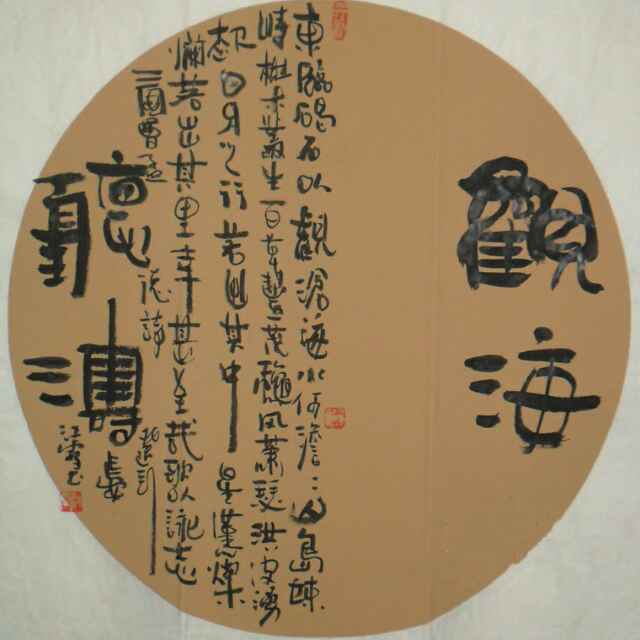 觀海
東臨碣石以觀滄海水何澹澹山島竦
峙樹木叢生百草豐茂穐風蕭瑟洪波湧
起日月之行若出其中星漢燦
爛若出其里幸甚至哉歌以詠志
三國曹孟德詩
聽濤